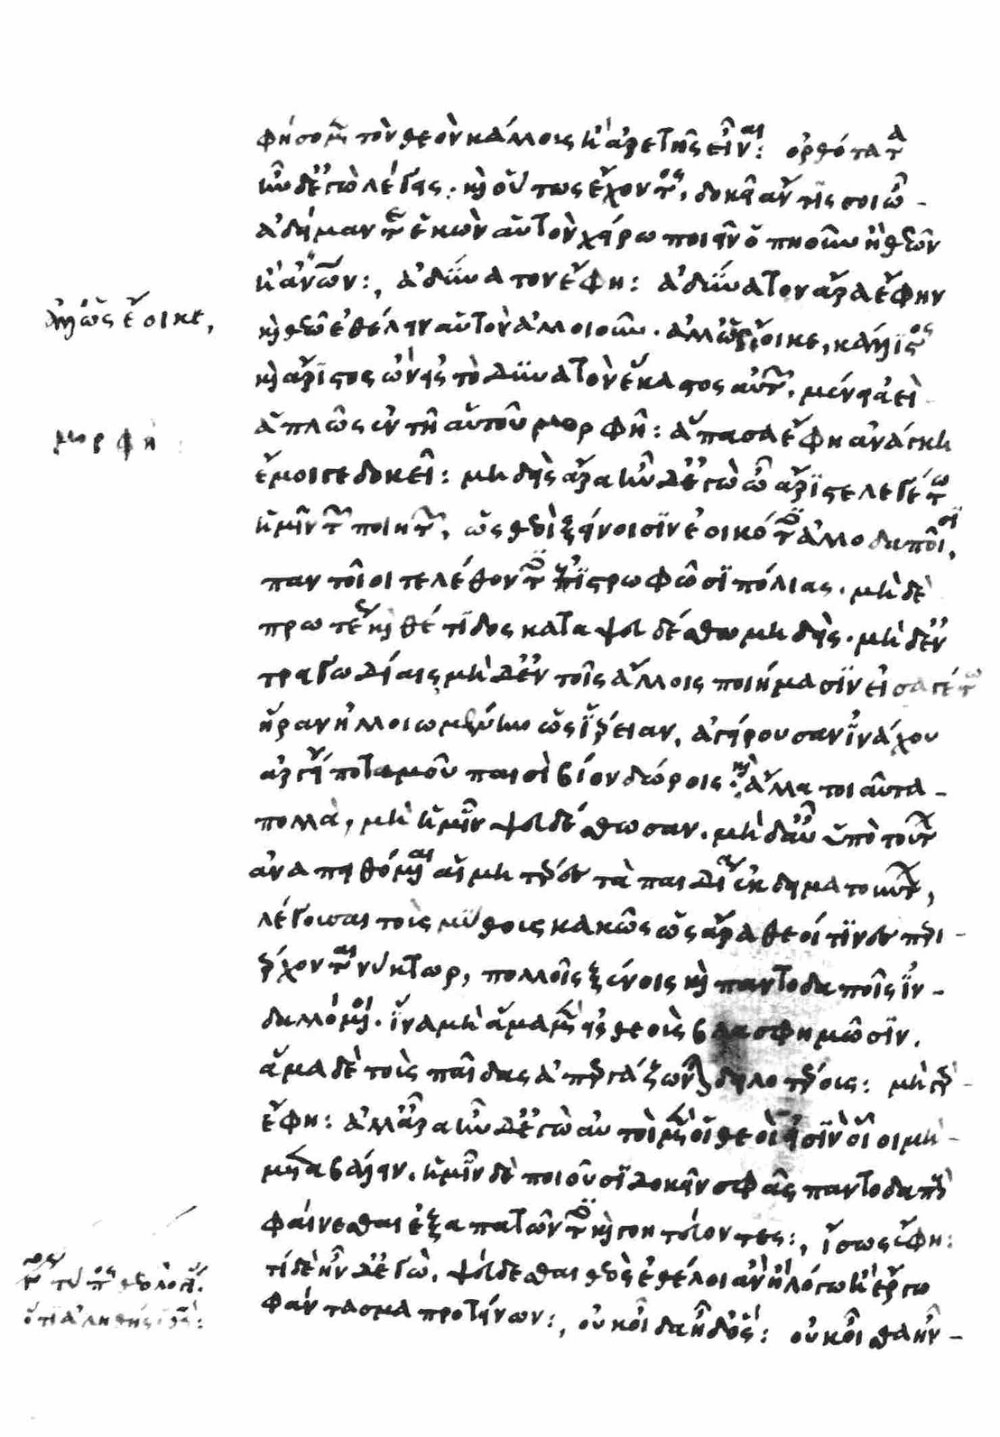 φήσομεν τὸν θεὸν κάλλους ἢ ἀρετῆς εἶναι: ὀρθότατα
ἦν δ' ἐγὼ λέγεις. καὶ οὕτως ἔχοντος, δοκεῖ ἄν τίς σοι ὦ -
ἀδείμαντε ἑκὼν αὑτὸν χείρω ποιεῖν ὁπηοῦν ἢ θεῶν
ἢ ἀνθρώπων:, ἀδύνατον ἔφη: ἀδύνατον ἄρα ἔφην
ἀλλ' ὡς ἔοικε,
καὶ θεῶ ἐθέλειν αὑτὸν ἀλλοιοῦν. ἀλλ' ὡς ἔοικε, κάλλιστος
καὶ ἄριστος ὢν εἰς τὸ δυνατὸν ἕκαστος αὐτῶν, μένει ἀεὶ
μορφῆ
ἁπλῶς ἐν τῆ αὑτοῦ μορφῆ: ἅπασα ἔφη ἀνάγκη
ἔμοιγε δοκεῖ: μηδεὶς ἄρα ἦν δ' ἐγὼ ὦ ἄριστε λεγέτω
ἡμῖν τῶν ποιητῶν, ὡς θεοὶ ξείνοισιν ἐοικότες ἀλλοδαποῖσι,
παντοῖοι τελέθοντες ἐπιστρωφῶσι πόλιας. μὴ δὲ
πρωτέως καὶ θέτιδος καταψευδέσθω μηδείς. μὴ δ' ἐν
τραγωδίαις μὴ δ' ἐν τοῖς ἄλλοις ποιήμασιν εἰσαγέτω
ἥραν ἠλλοιωμένην ὡς ἱέρειαν, ἀγείρουσαν ἰνάχου
ἀργείου ποταμοῦ παισὶ βιοδώροις. καὶ ἄλλα τοιαῦτα -
πολλὰ, μὴ ἡμῖν ψευδέσθωσαν. μὴ δ' αὖ ὑπὸ τούτων
ἀναπειθόμεναι αἱ μητέρες τὰ παιδία ἐκδειματούντων,
λέγουσαι τοὺς μύθους κακῶς ὡς ἄρα θεοί τινες περι -
έρχονται νύκτωρ, πολλοῖς ξένοις καὶ παντοδαποῖς ἰν -
δαλλόμενοι. ἵνα μὴ ἅμα μὲν εἰς θεοὺς βλασφημῶσιν.
ἅμα δὲ τοὺς παῖδας ἀπεργάζωνται δειλοτέρους: μὴ γὰρ -
ἔφη: ἀλλ' ἄρα ἦν δ' ἐγὼ αὐτοὶ μὲν οἱ θεοί εἰσιν οἷοι μὴ -
μεταβάλλειν. ἡμῖν δὲ ποιοῦσι δοκεῖν σφᾶς παντοδαποὺς
φαίνεσθαι ἐξαπατῶντες καὶ γοητεύοντες:, ἴσως ἔφη:
τί δὲ ἦν δ' ἐγὼ, ψεύδεσθαι θεὸς ἐθέλοι ἂν ἢ λόγω ἢ ἔργω
ὅτι ἀληθής
φάντασμα προτείνων:, οὐκ οἶδα ἦ δ' ὅς: οὐκ οἶσθα ἦν -